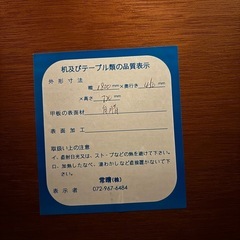 机及びテーブル類の品質表示
外形寸法
幅1800mm×奥行き 450mm
×高さ 700mm
甲板の表面材
表面加工
取扱い上の注意
イ. 直射日光又は、ストーブなどの熱を避けて下さい。
ロ. 加熱したなべ、湯わかしなど直接置かないて下
さい。
常晴(株)
表示者 072-967-6484